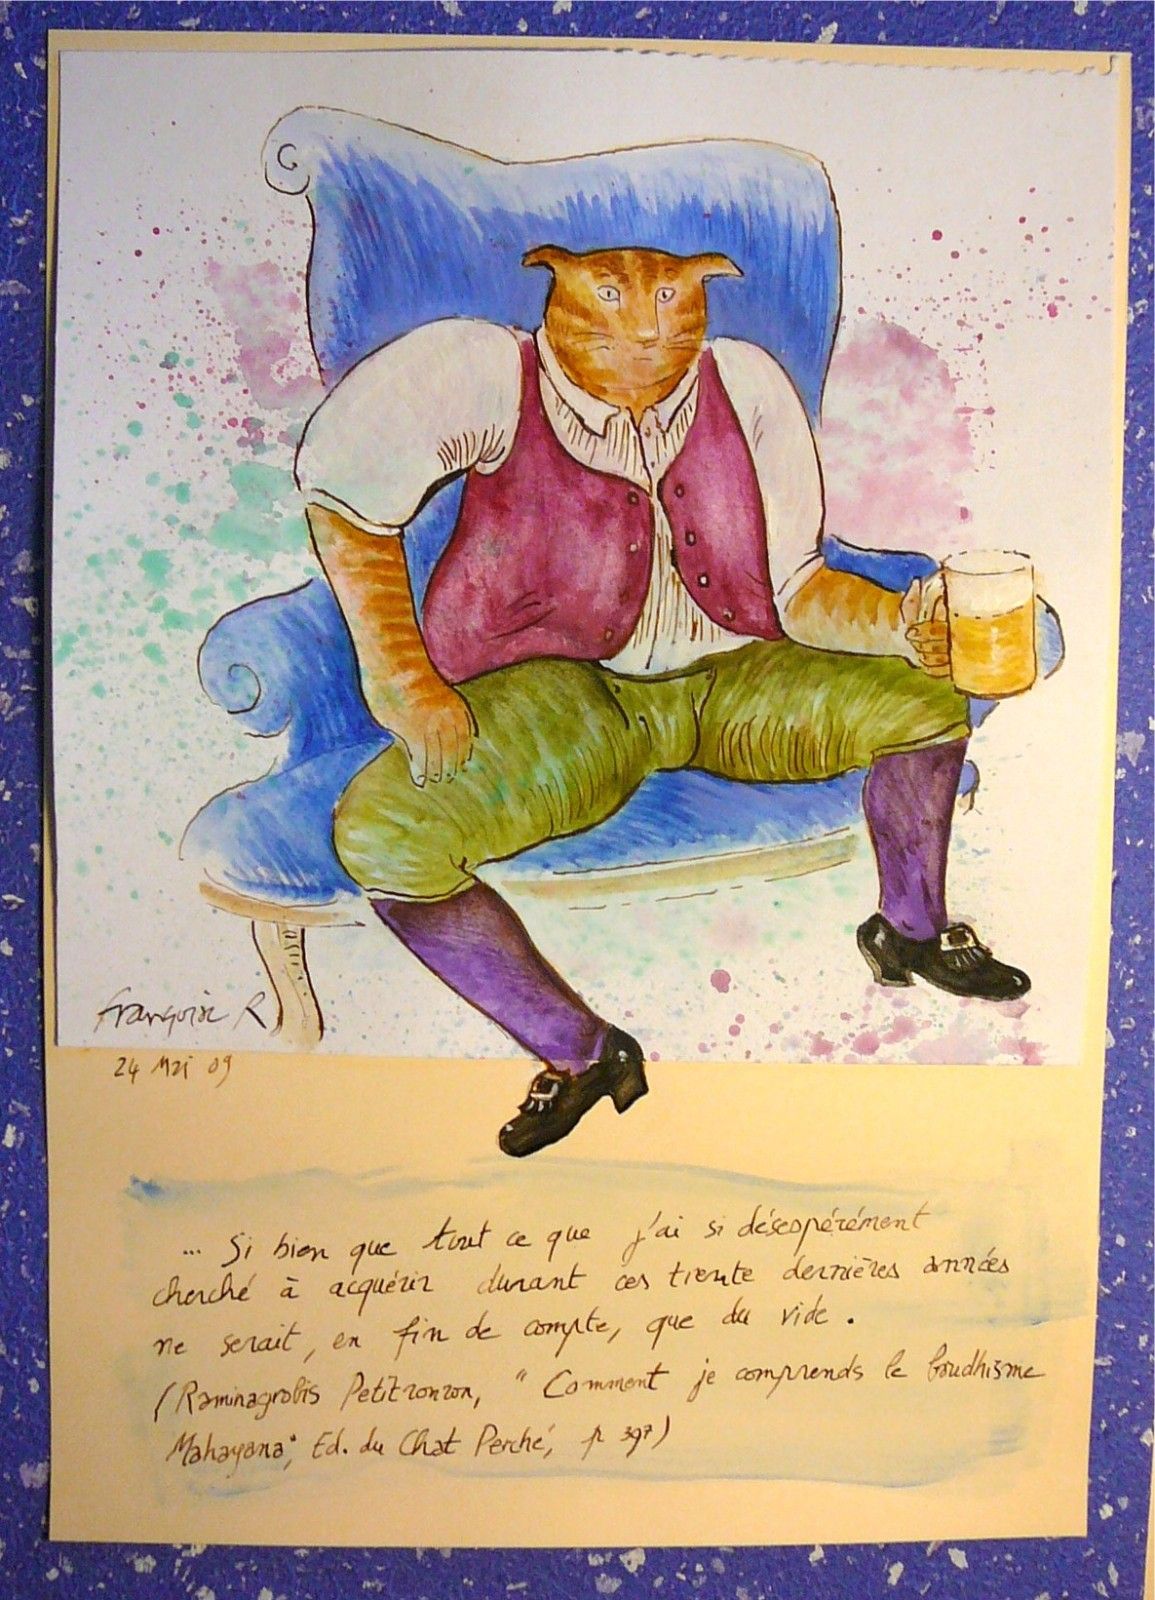 Françoise R
24 Mai 09
... Si bien que tout ce que j'ai si désespérément
cherché à acquérir durant ces trente dernières années
ne serait, en fin de compte, que du vide.
(Raminagrobis Petitronron, "Comment je comprends le boudhisme
Mahayana", Ed. du Chat Perché, p 397)